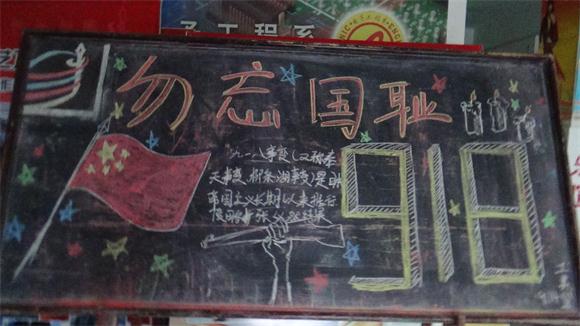 子工程系
勿忘国耻
九一八事变（又称奉
天事变、柳条湖事变）是日
帝国主义长期以来推行
918